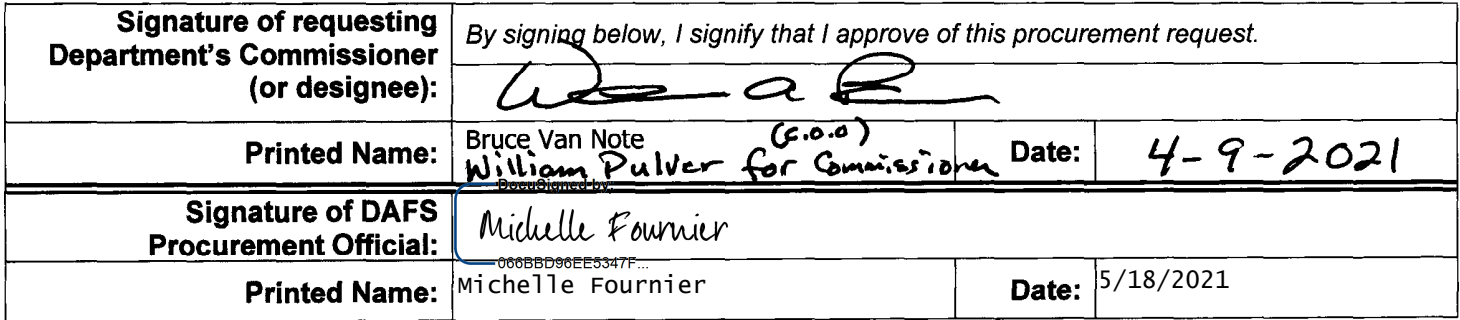 Signature of requesting
Department's Commissioner
(or designee):
By signing below, I signify that I approve of this procurement request.
Printed Name:
Bruce Van Note
(C.O.O)
William Pulver for Commissioner
Date:
4-9-2021
Signature of DAFS
Procurement Official:
DocuSigned by:
Michelle Fournier
066BBD96EE5347F...
Printed Name:
Michelle Fournier
Date:
5/18/2021